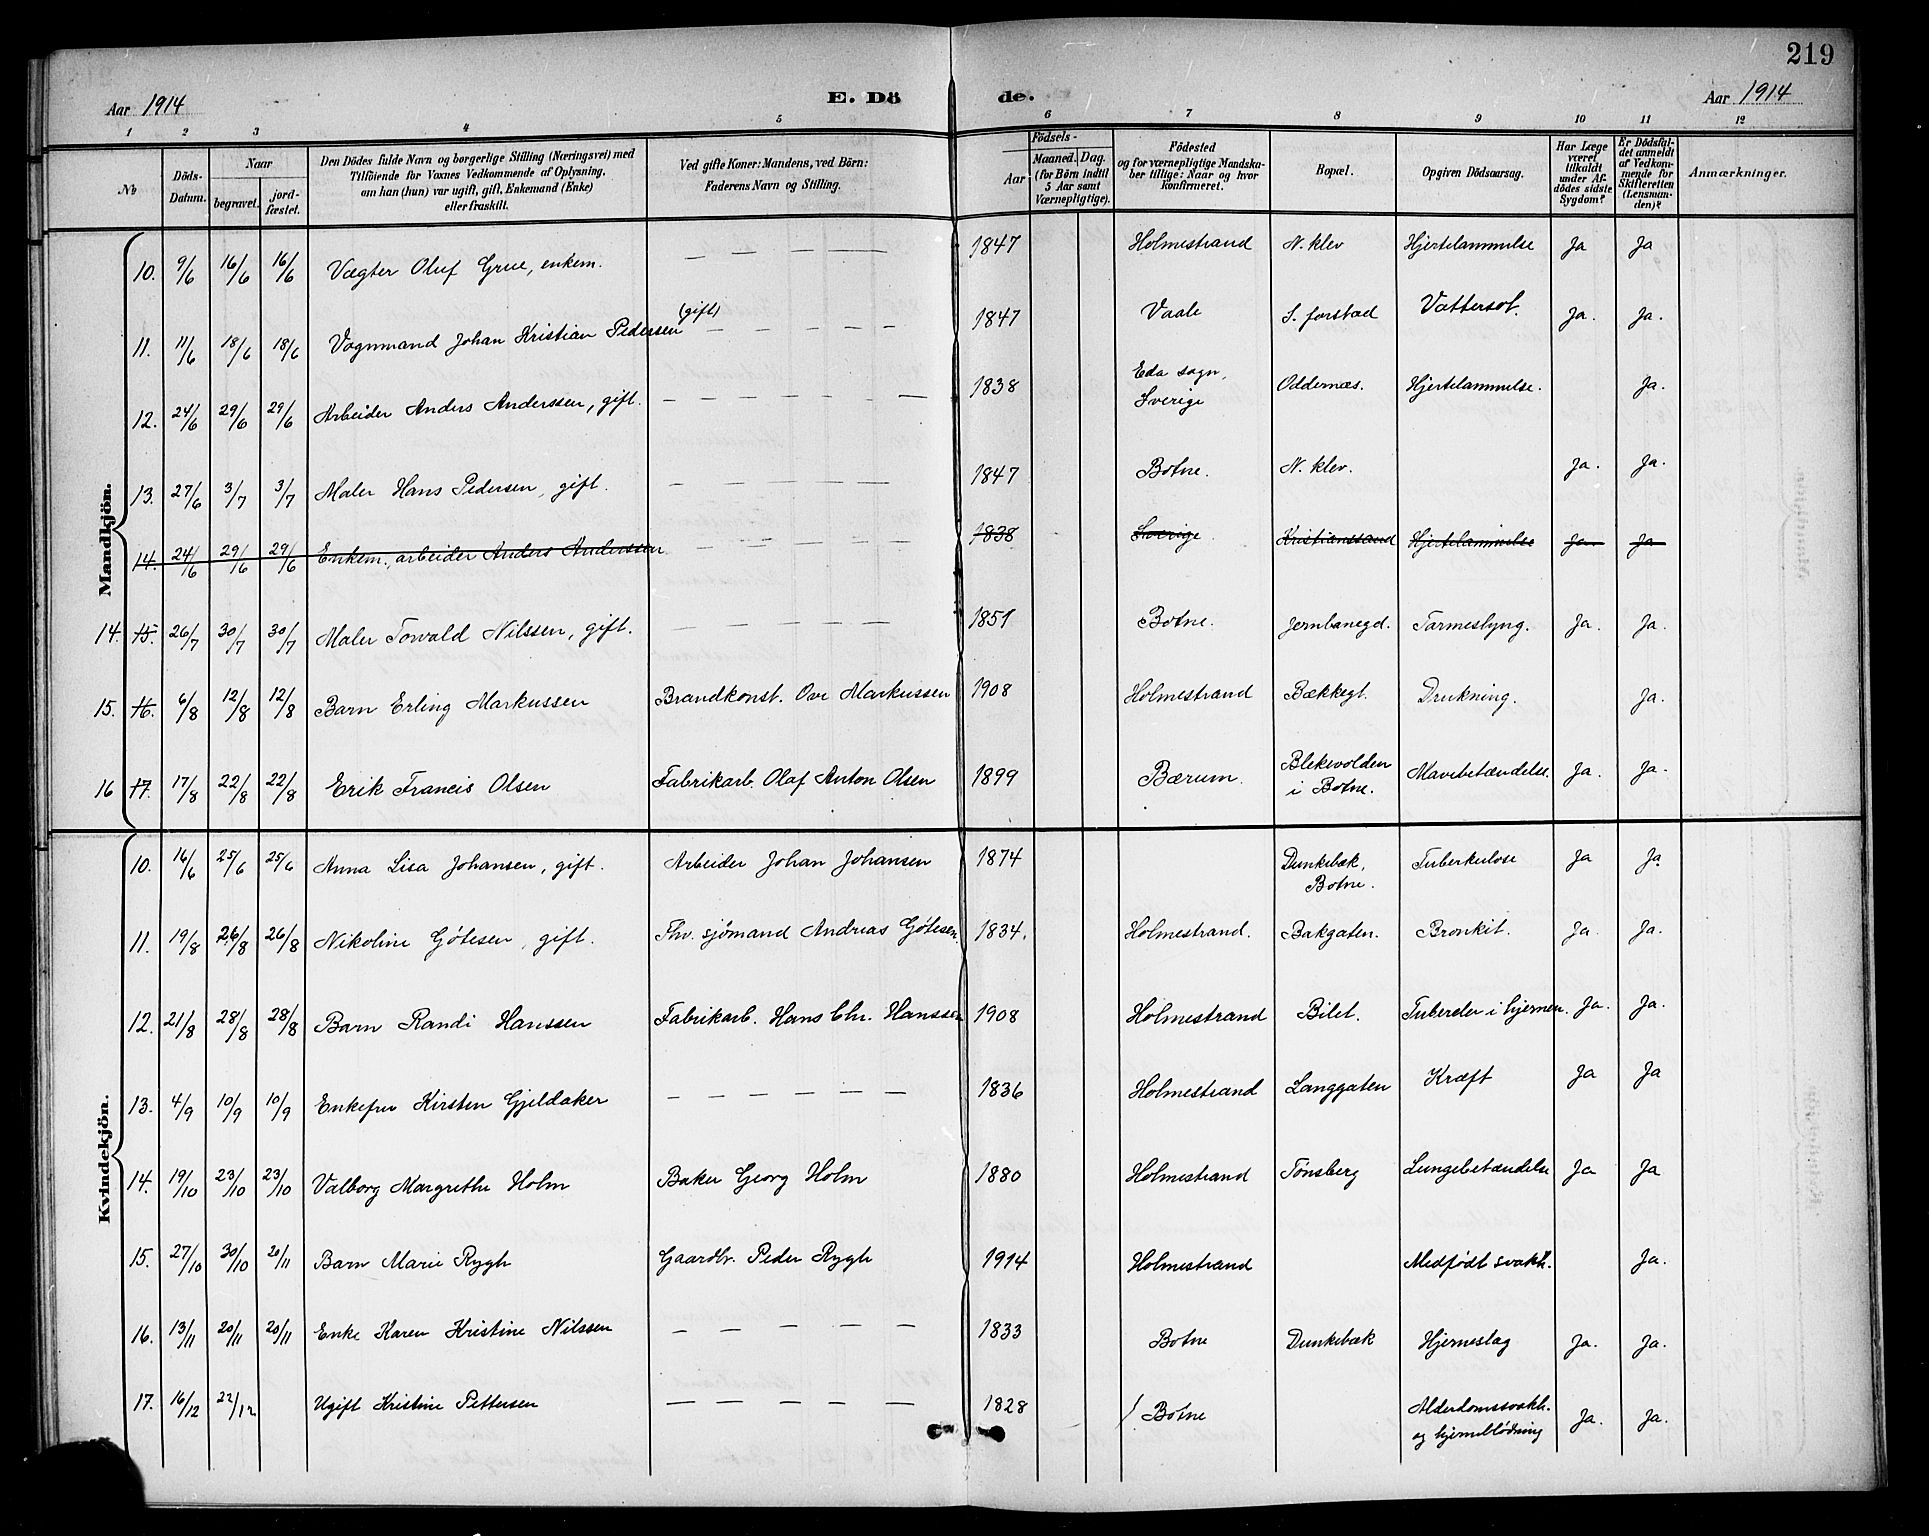 219
Aar 1914
E. Dö
de.
Aar 1914
1 2 3 4 5 6 7 8 9 10 11 12
No
Döds-
Datum.
Naar
begravet.
jord-
fæstet.
Den Dödes fulde Navn og borgerlige Stilling (Næringsvei) med
Tilföiende for Voxnes Vedkommende af Oplysning,
om han (hun) var ugift, gift, Enkemand (Enke)
eller fraskilt.
Ved gifte Koner: Mandens, ved Börn:
Faderens Navn og Stilling.
Födsels-
Aar
Maaned. Dag.
(for Börn indtil
5 Aar samt
Værnepligtige).
Födested
og for værnepligtige Mandska-
ber tillige: Naar og hvor
konfirmeret.
Bopæl.
Opgiven Dödsaarsag.
Har Læge
været
tilkaldt
under Af-
dödes sidste
Sygdom?
Er Dödsfal-
det anmeldt
af Vedkom-
mende for
Skifteretten
(Lensman-
den)?
Anmærkninger.
Mandkjön.
10. 9/6 16/6 16/6 Vægter Oluf Grue, enkem. — — — — — 1847 Holmestrand N. klev Hjertelammelse Ja Ja
11. 11/6 18/6 18/6 Vognmand Johan Kristian Pedersen (gift) — — — — — 1847 Vaale S. forstad Vattersot. Ja. Ja.
12. 24/6 29/6 29/6 Arbeider Anders Anderssen, gift. — — — — — 1838 Eda sogn, Sverige Oddernæs. Hjertelammelse. Ja.
13. 27/6 3/7 3/7 Maler Hans Pedersen, gift. — — — — — 1847 Botne. N. klev. Ja. Ja.
14. 24/6 29/6 29/6 Enkem., arbeider Anders Anderssen — — — — — 1838 Sverige Kristianssand Hjertelammelse Ja Ja
14. 15. 26/7 30/7 30/7 Maler Torvald Nilssen, gift. — — — — — 1851 Botne. Jernbanegd. Tarmeslyng. Ja. Ja.
15. 16. 6/8 12/8 12/8 Barn Erling Markussen Brandkonst. Ove Markussen 1908 Holmestrand Bækkegt. Drukning. Ja.
16 17. 17/8 22/8 22/8 Erik Francis Olsen Fabrikarb. Olaf Anton Olsen 1899 Bærum. Blekevolden i Botne. Mavebetændelse. Ja. Ja.
Kvindekjön.
10. 16/6 25/6 25/6 Anna Lisa Johansen, gift. Arbeider Johan Johansen 1874 Dunkebæk, Botne. Tuberkulose Ja Ja
11. 19/8 26/8 26/8 Nikoline Gøtesen, gift. Fhv. sjömand Andreas Gøtesen. 1834. Holmestrand. Bakgaten. Bronkit. Ja. Ja.
12. 21/8 28/8 28/8 Barn Randi Hanssen Fabrikarb. Hans Chr. Hanssen 1908 Holmestrand Bilet. Tubercler i hjernen. Ja. Ja.
13. 4/9 10/9 10/9 Enkefru Kirsten Gjeldaker — — — — — 1836 Holmestrand Langgaten Kræft Ja Ja
14. 19/10 23/10 23/10 Valborg Margrethe Holm Baker Georg Holm 1880 Holmestrand Tønsberg Lungebetændelse Ja Ja
15. 27/10 30/10 20/11 Barn Marie Rygh Gaardbr. Peder Rygh 1914 Holmestrand Medfødt svakh. Ja.
16. 13/11 20/11 20/11 Enke Karen Kristine Nilssen — — — — — 1833 Botne Dunkebæk Hjerneslag Ja. Ja.
17. 16/12 22/12 Ugift Kristine Pettersen — — — — — 1828 Botne Alderdomssvakh. og hjerneblødning Ja. Ja.